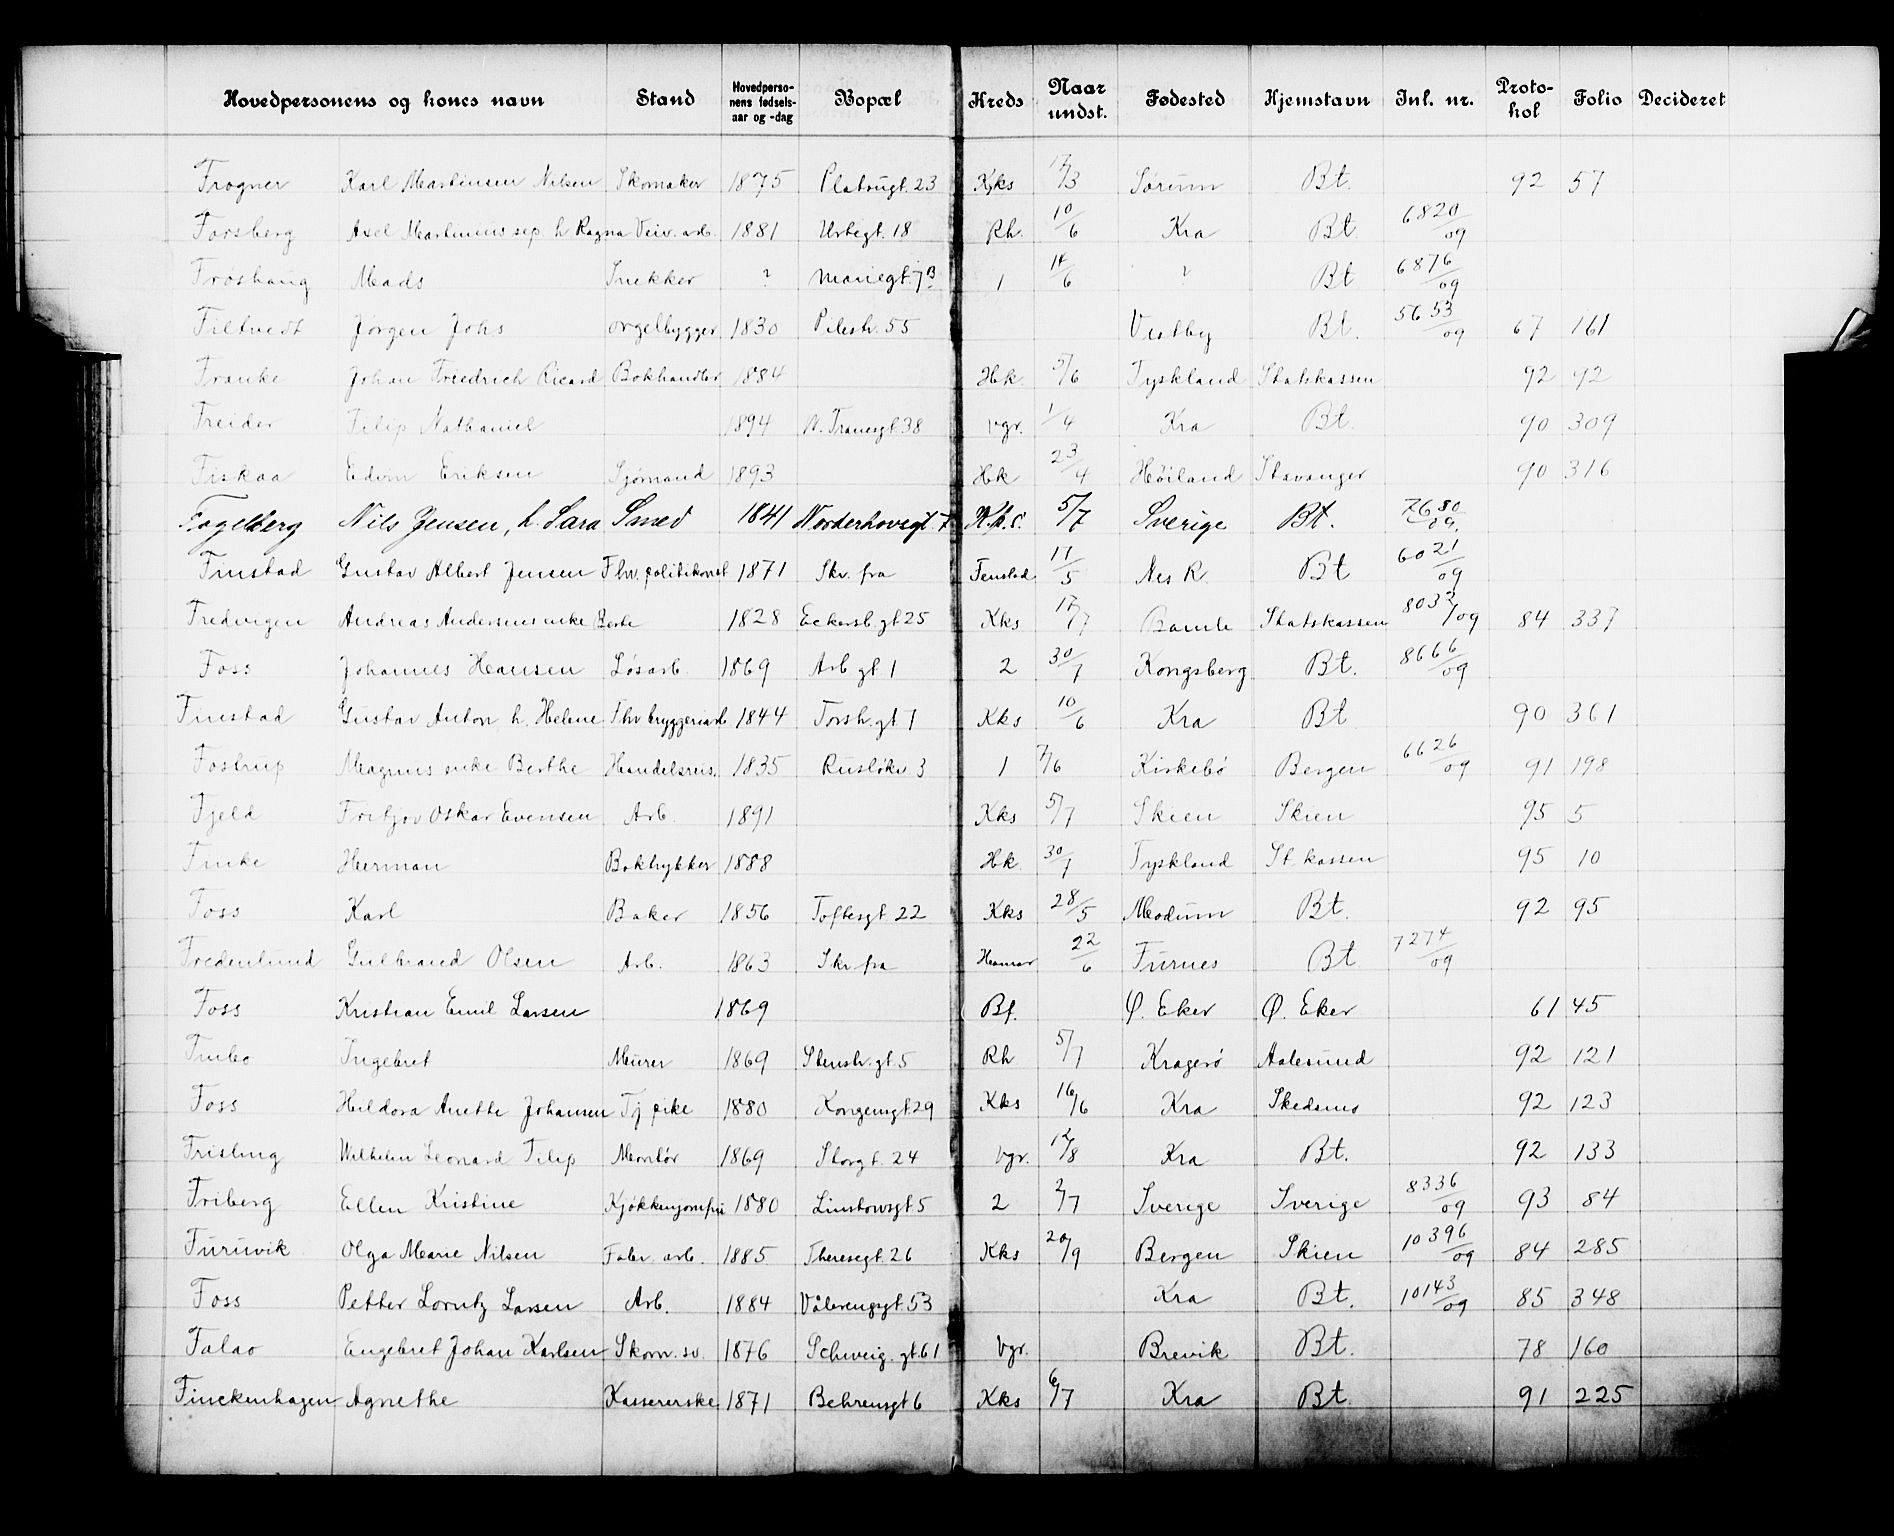 Hovedpersonens og kones navn Stand Hovedpersonens fødselsaar og -dag Bopæl Kreds Naar undst. Fødested Hjemstavn Inl. nr. Protokol Folio Decideret
Frogner Karl Martinsen Nilsen Skomaker 1875 Platougt. 23 Kks 17/3 Sørum Bt. 92 57
Forsberg Axel Martinius sep. h Ragna Veiv. arb. 1881 Urtegt. 18 Rh. 10/6 Kra Bt. 6820/09
Froshaug Mads Snekker ? Mariegt. 7B 1 14/6 ? Bt 6876/09
Filtvedt Jørgen Johs orgelbygger 1830 Pilestr. 55 Vestby Bt. 5653/09 67 161
Franke Johan Friedrich Ricard Bokhandler 1884 Hk. 5/6 Tyskland Statskassen 92 92
Freider Filip Nathaniel 1894 N. Tranesgt. 38 Vgr. 1/4 Kra Bt. 90 309
Fiskaa Edvin Eriksen Sjømand 1893 Hk 23/4 Høiland Stavanger 90 316
Fagelberg Nils Jensen, h. Sara Smed 1841 Norderhovegt. 7 K.k.s. 5/7 Sverige Bt. 7680/09.
Finstad Gustav Albert Jensen Fhv. politikonst 1871 Skr. fra Fenstad 11/5 Nes R. Bt 6021/09
Fredvigen Andreas Andersens enke Berte 1828 Eckersb. gt 25 Kks 17/7 Bamle Statskassen 8032/09 84 337
Foss Johannes Hansen Løsarb. 1869 Arb gt. 1 2 30/7 Kongsberg Bt. 8666/09
Finstad Gustav Anton h. Helene Fhv bryggeriarb 1844 Torsh. gt. 7 Kks 10/6 Kra Bt 90 361
Fostrup Magnus enke Berthe Handelsreis. 1835 Rusløkv 3 1 7/6 Kirkebø Bergen 6626/09 91 198
Fjeld Fritjov Oskar Evensen Arb. 1891 Kks 5/7 Skien Skien 95 5
Finke Herman Boktrykker 1888 Hk. 30/7 Tyskland St. kassen 95 10
Foss Karl Baker 1856 Toftesgt 22 Kks 28/5 Modum Bt. 92 95
Fredenlund Gulbrand Olsen Arb. 1863 Skr. fra Hamar 22/6 Furnes Bt 7274/09
Foss Kristian Emil Larsen 1869 Bf. Ø. Eker Ø. Eker 61 45
Finbo Ingebret Murer 1869 Stenstr. gt. 5 Rh 5/7 Kragerø Aalesund 92 121
Foss Hildora Anette Johansen Tj pike 1880 Kongensgt 29 Kks 16/6 Kra Skedsmo 92 123
Frisling Wilhelm Leonard Filip Montør 1869 Storgt. 24 Vgr. 12/8 Kra Bt. 92 133
Friberg Ellen Kristine Kjøkkenjomfru 1880 Linstowsgt 5 2 2/7 Sverige Sverige 8336/09 93 84
Furuvik Olga Marie Nilsen Fabr. arb. 1885 Theresegt. 26 Kks 20/9 Bergen Skien 10396/09 84 285
Foss Petter Lorntz Larsen Arb. 1884 Vålerengsgt. 53 Kra Bt. 10143/09 85 348
Falao Engebret Johan Karlsen Skom. sv. 1876 Schweig. gt 61 Vgr. Brevik Bt. 78 160
Finckenhagen Agnethe Kassererske 1871 Behrensgt 6 Kks 6/7 Kra Bt. 91 225